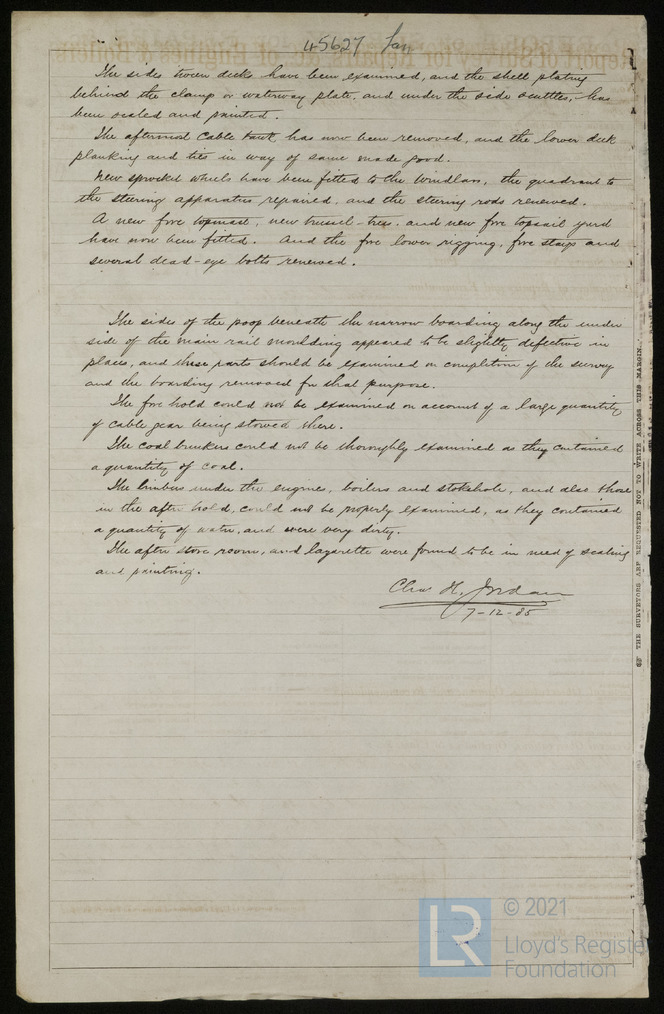 45627
The sides tween decks have been examined, and the shell plating
behind the clamp or waterway plate, and under the side scuttles, has
been scaled and painted.
The aftermost Cable tank has now been removed, and the lower deck
planking and ties in way of same made good.
New sprocket wheels have been fitted to the windlass, the quadrant to
the steering apparatus repaired, and the steering rods renewed.
A new fore topmast, new tressel-trees, and new fore topsail yard
have now been fitted. And the fore lower rigging, fore stays and
several dead-eye bolts renewed.
The sides of the poop beneath the narrow boarding along the under
side of the main rail moulding appeared to be slightly defective in
places, and these parts should be examined on completion of the survey
and the boarding removed for that purpose.
The fore hold could not be examined on account of a large quantity
of cable gear being stowed there.
The coal bunkers could not be thoroughly examined as they contained
a quantity of coal.
The limbers under the engines, boilers and stokehole, and also those
in the after hold, could not be properly examined, as they contained
a quantity of water, and were very dirty.
The after store room, and lazarette were found to be in need of scaling
and painting.
Chas H. Jordan
7-12-85
THE SURVEYORS ARE REQUESTED NOT TO WRITE ACROSS THIS MARGIN.
LR
© 2021
Lloyd's Registe
Foundation